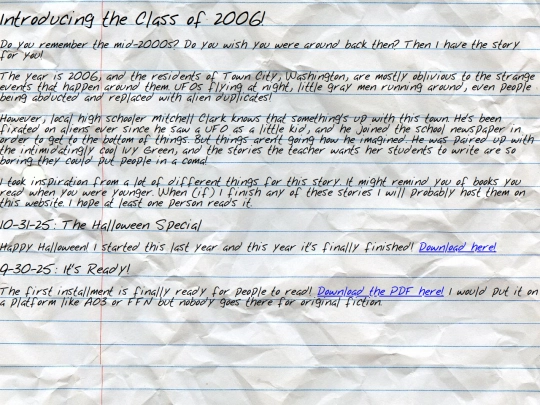 Introducing the Class of 2006!
Do you remember the mid-2000s? Do you wish you were around back then? Then I have the story
for you!
The year is 2006, and the residents of Town City, Washington, are mostly oblivious to the strange
events that happen around them. UFOs flying at night, little gray men running around, even people
being abducted and replaced with alien duplicates!
However, local high schooler Mitchell Clark knows that something's up with this town. He's been
fixated on aliens ever since he saw a UFO as a little kid, and he joined the school newspaper in
order to get to the bottom of things. But things aren't going how he imagined. He was paired up with
the intimidatingly cool Ivy Green, and the stories the teacher wants her students to write are so
boring they could put people in a coma!
I took inspiration from a lot of different things for this story. It might remind you of books you
read when you were younger. When (if) I finish any of these stories I will probably host them on
this website. I hope at least one person reads it.
10-31-25: The Halloween Special
Happy Halloween! I started this last year and this year it's finally finished! Download here!
9-30-25: It's Ready!
The first installment is finally ready for people to read! Download the PDF here! I would put it on
a platform like AO3 or FFN but nobody goes there for original fiction.